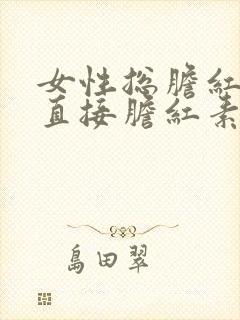 女性总膽紅
直接膽紅素
島田翠